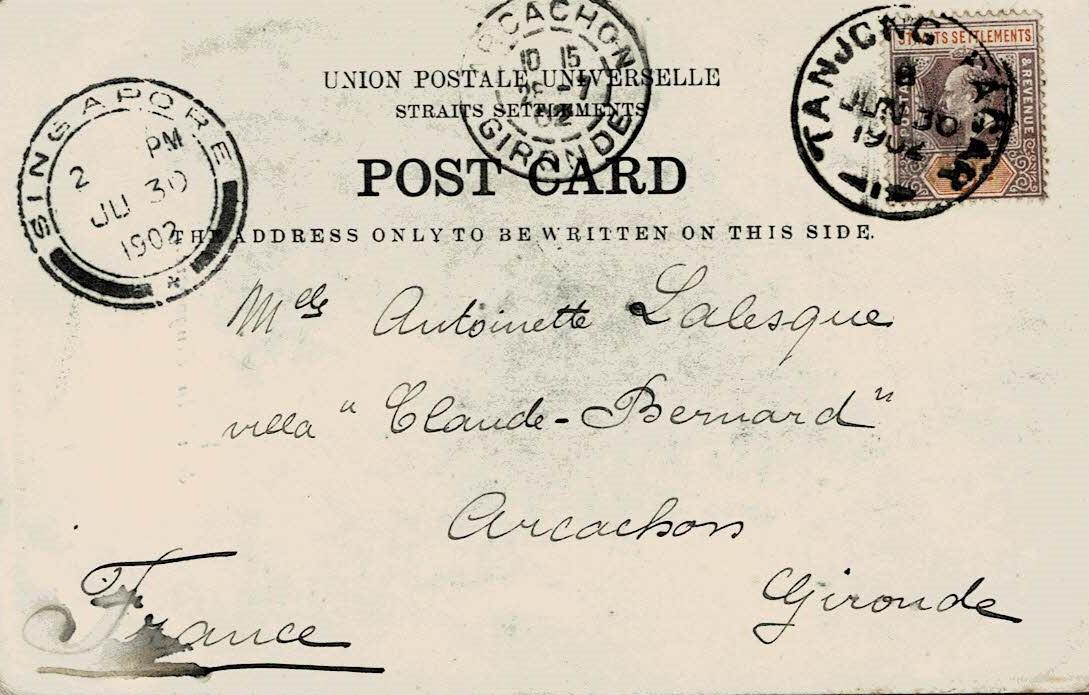 ARCACHON
10 15
28 -7
02
GIRONDE
TANJONG PAGAR
B
JUN 30
1902
STRAITS SETTLEMENTS
POSTAGE & REVENUE
SINGAPORE
2 PM
JU 30
1902
UNION POSTALE UNIVERSELLE
STRAITS SETTLEMENTS
POST CARD
THE ADDRESS ONLY TO BE WRITTEN ON THIS SIDE.
Melle Antoinette Lalesque
villa "Claude-Bernard"
Arcachon
Gironde
France